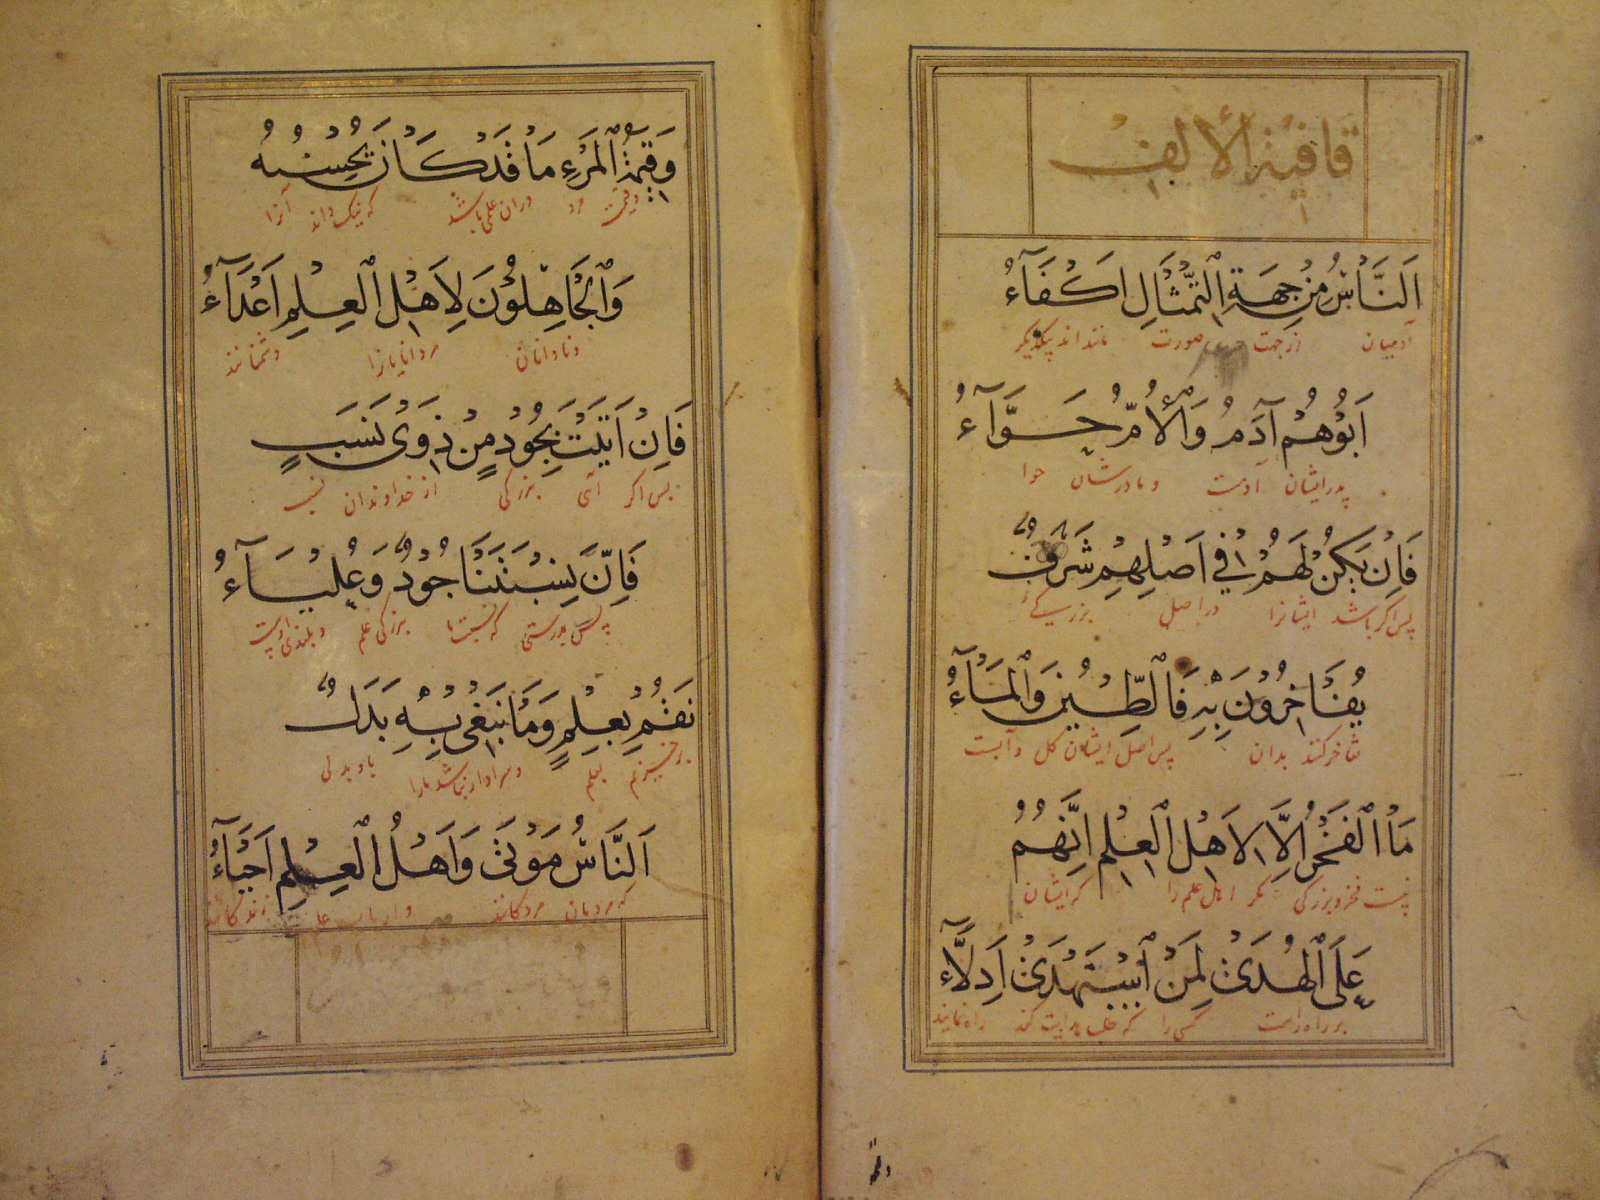 قافية الألف
اَلنَّاسُ مِنْ جِهَةِ التِّمْثَالِ اَكْفَآءُ
آدمیان از جهت صورت مانند اند یکدیگر
اَبُوْهُمْ آدَمُ وَالْأُمُّ حَوَّآءُ
پدر ایشان آدمست و مادرشان حوا
فَاِنْ يَكُنْ لَهُمْ فِي اَصْلِهِمْ شَرَفٌ
پس اگر باشد ایشانرا در اصل بزرگی
يُفَاخِرُوْنَ بِهِ فَالطِّيْنُ وَالْمَآءُ
تفاخر کنند بدان پس اصل ایشان گل و آبست
مَا الْفَخْرُ اِلَّا لِاَهْلِ الْعِلْمِ اِنَّهُمُ
نیست فخر و بزرگی مگر اهل علم را که ایشان
عَلَى الْهُدَىٰ لِمَنْ اسْتَهْدَىٰ اَدِلَّآءُ
بر راه راست کسی را که طلب هدایت کند راه نمایند
وقيمة
وَقِيْمَةُ الْمَرْءِ مَا قَدْ كَانَ يُحْسِنُهُ
وقیمت مرد در ان علمی باشد که نیک داند آنرا
وَالْجَاهِلُوْنَ لِاَهْلِ الْعِلْمِ اَعْدَآءُ
و نادانان مر دانایانرا دشمنانند
فَاِنْ اَتَيْتَ بِجُوْدٍ مِنْ ذَوِىْ نَسَبٍ
پس اگر آئی بزرگی از خداوندان نسب
فَاِنَّ نِسْبَتَنَا جُوْدٌ وَعُلْيَآءُ
پس بدرستی که نسبت ما بزرگی علم و بلندی
نَقُمْ بِعِلْمٍ وَمَا نَبْغِى بِهِ بَدَلٌ
برخیزم بعلم و سزاوار نباشد مارا باو بدلی
اَلنَّاسُ مَوْتَىٰ وَاَهْلُ الْعِلْمِ اَحْيَآءُ
که مردمان مردگانند و ارباب علم زندگانند